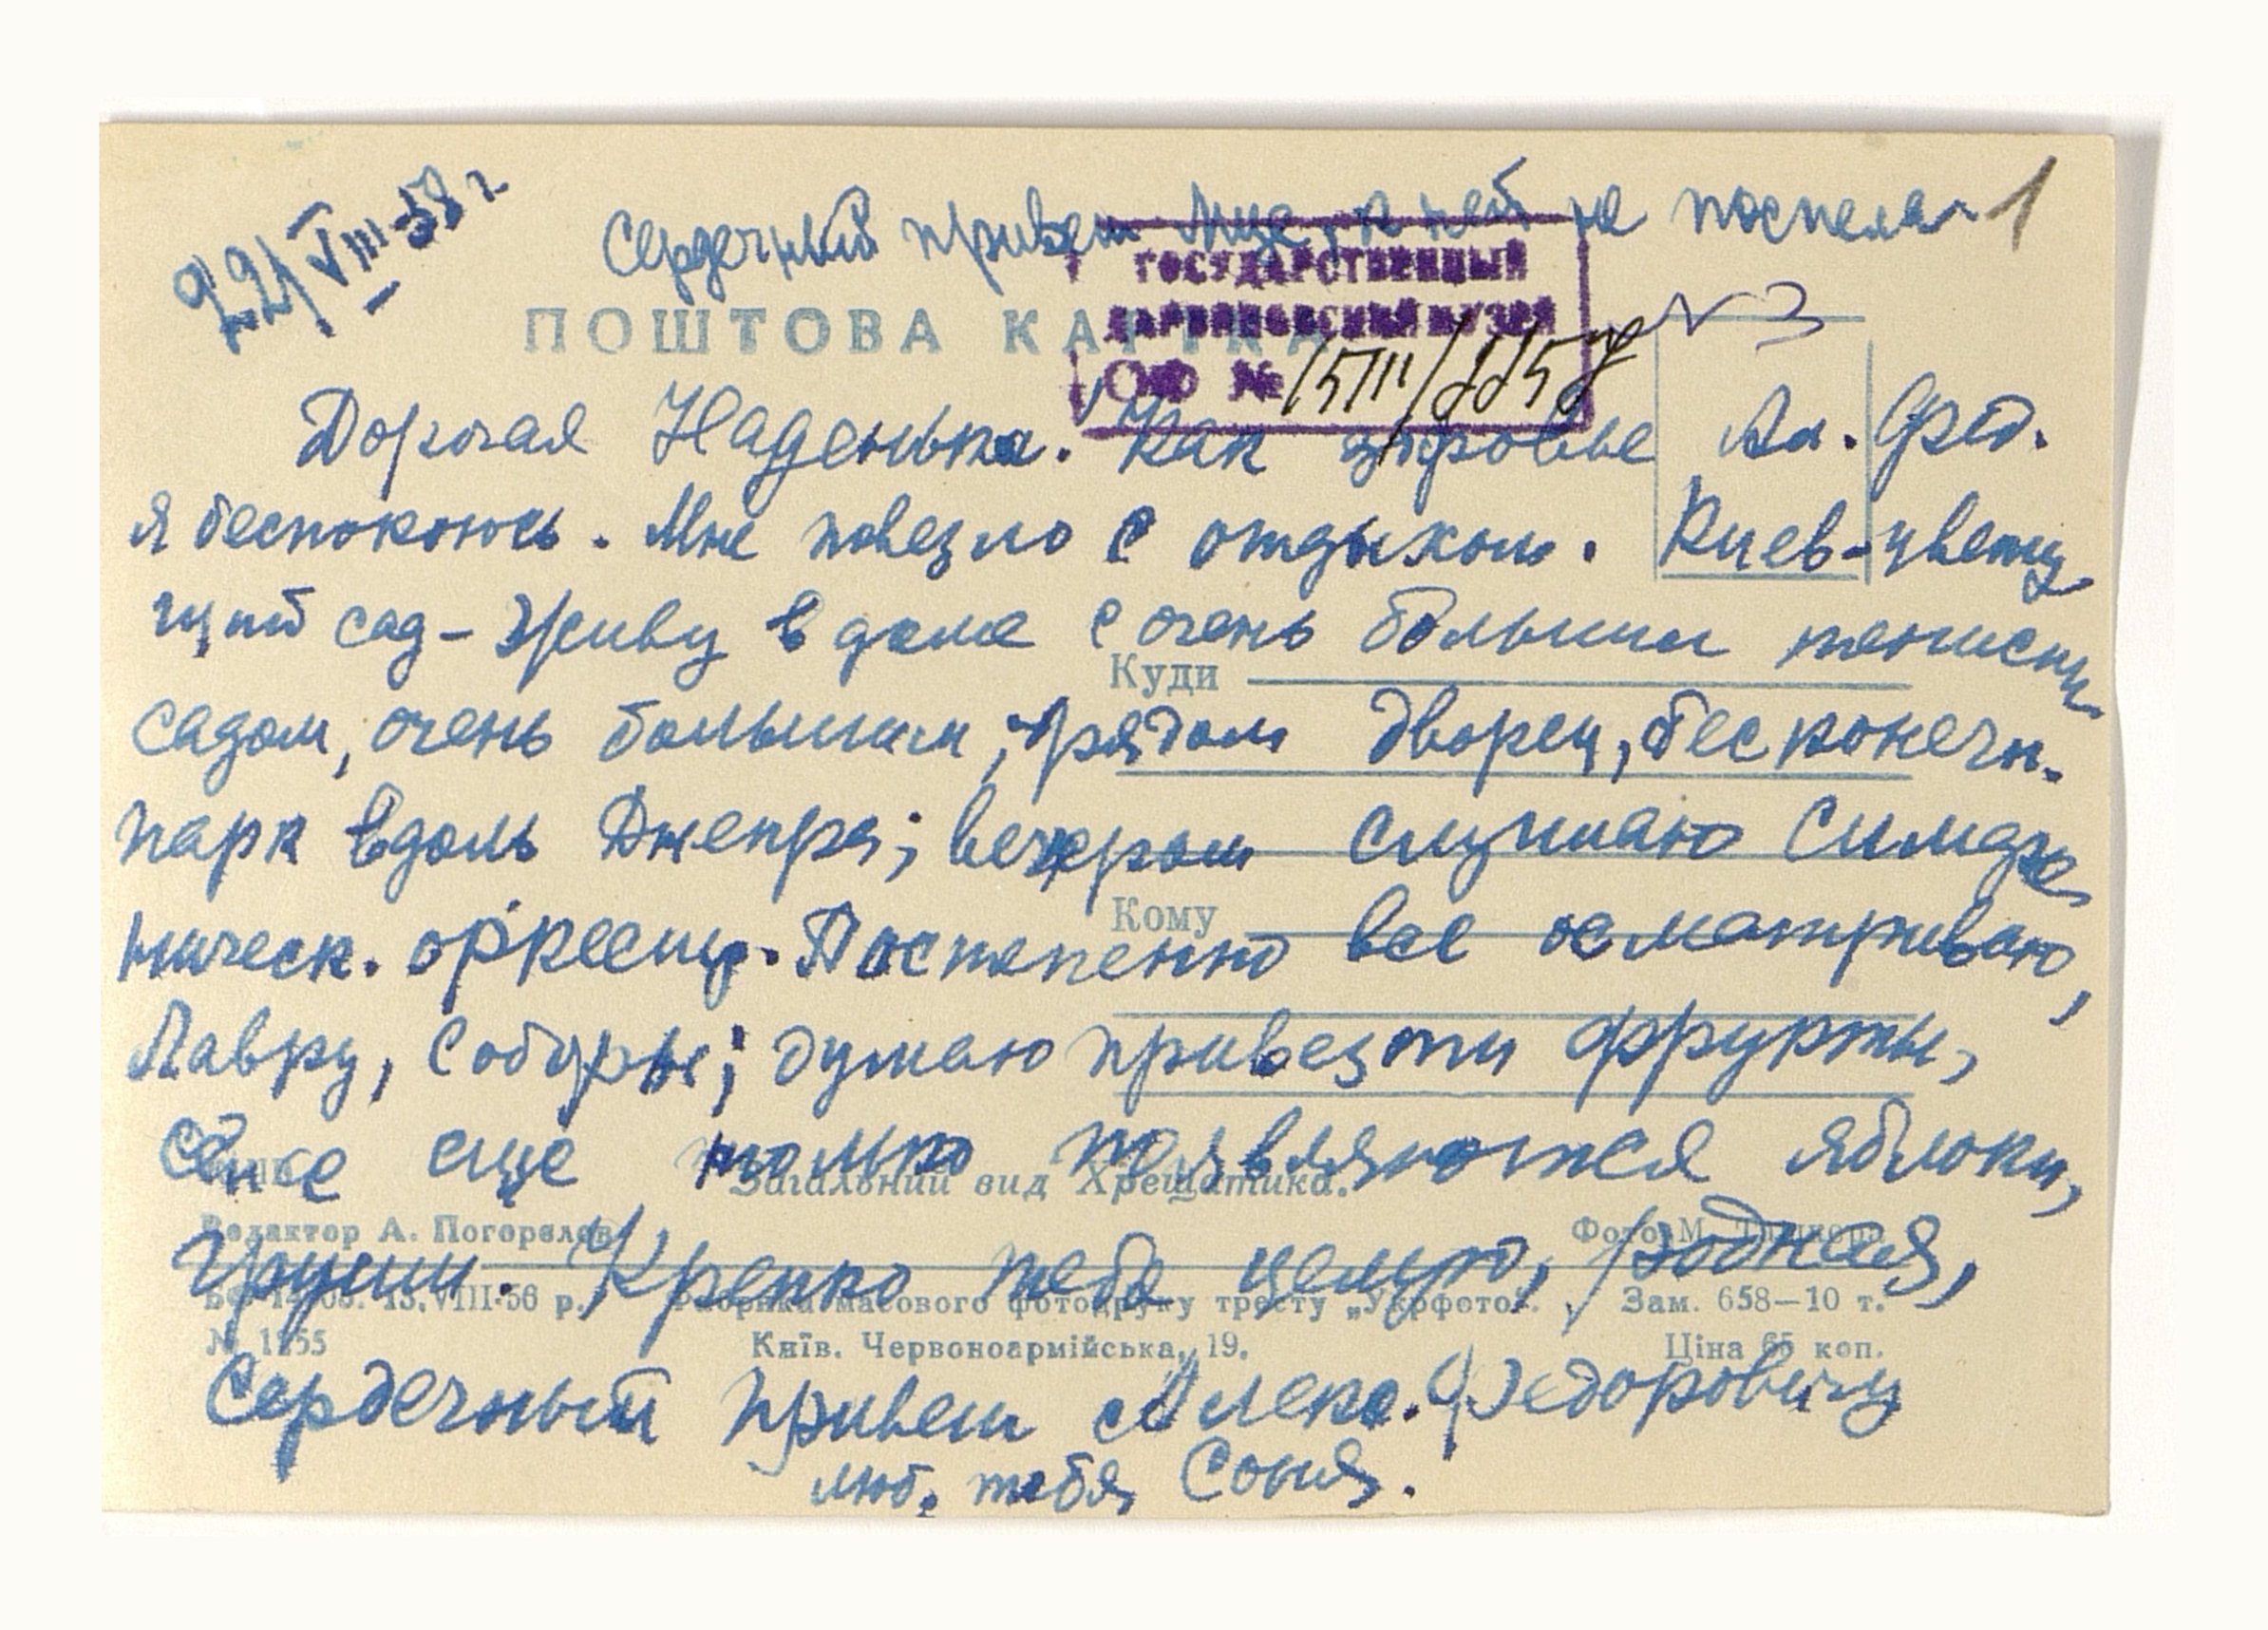 22/VIII-58 г.
Сердечный привет Мусе, к ней не поспела 1
ПОШТОВА КАРТКА
ГОСУДАРСТВЕННЫЙ
МУЗЕЙ
№ 15111/
№ 3
Дорогая Наденька. Как здоровье Ал. Фед.
я беспокоюсь. Мне повезло с отдыхом. Киев-цвету
щий сад - Живу в доме с очень большим тенист.
садом, очень большим, рядом дворец, бесконечн.
Куди
парк вдоль Днепра; вечером слушаю Симфо
ническ. оркестр. Постепенно все осматриваю,
Кому
Лавру, Соборы; думаю привезти фрукты,
еще только появляются яблоки,
Загальний вид Хрещатика.
Редактор А. Погорелов
Фото М.
груши. Крепко тебя целую, родная,
13.VIII-56 р. Фабрика масового фотодруку тресту „Укрфото". Зам. 658—10 т.
№ 1255 Київ. Червоноармійська, 19. Ціна 65 коп.
Сердечный привет Алекс. Федоровичу
люб. тебя Соня.